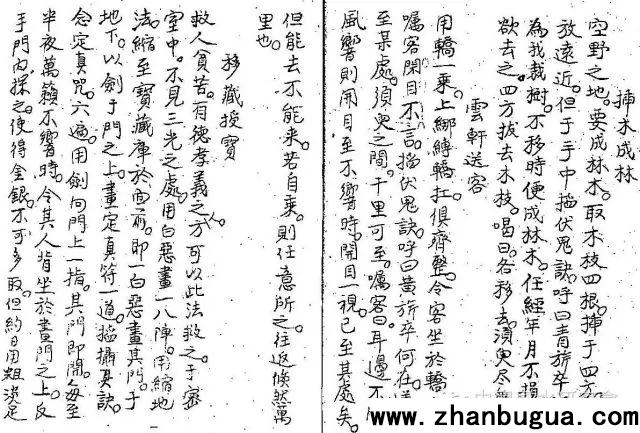 插木成林
空野之地要成林木。取木枝四根。插于四方
放遠近。但于手中掐伏鬼訣呼曰青旂卒
為我栽樹。不移時便成林木。任經年月不損
欲去之。四方拔去木枝。喝曰各移去。須臾尽
雲軒送客
用轎一乘。上綁縛轎扛俱齊整。令客坐於轎
囑客閉目不言。掐伏鬼訣呼曰黄旂卒何在
至某處。須臾之間。千里可至。囑客曰耳邊不
風響則開目至不響時。開目一視。已至其處矣。
但能去不能来。若自乘。則任意所之。往返倏然萬
里也。
移藏授寶
救人貧苦。有德孝義之人方可以此法救之。于密
室中。不見三光之處。用白惡畫一八陣。用縮地
法縮至寶藏庫於面前。即一白惡畫其門。于
地下。以劍于門之上。畫定真符一道。掐攝訣
念定真咒。六遍。用劍向門上一指。其門即開。每至
半夜萬籟不響時。令其人背坐於畫門之上。反
手門內探之。便得金銀。不可多取。但約日用粗足
www.zhanbugua.com